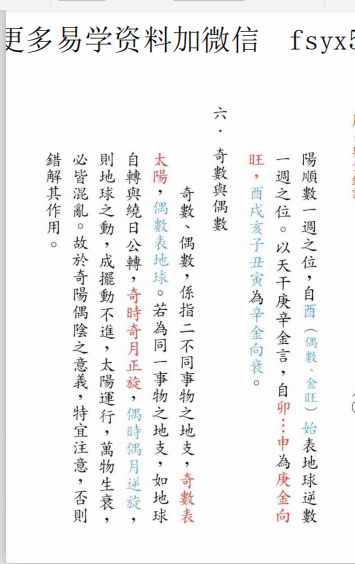 更多易学资料加微信 fsyx5
陽順數一週之位，自酉（偶數、金旺）始表地球逆數
一週之位。以天干庚辛金言，自卯…申為庚金向
旺，酉戌亥子丑寅為辛金向衰。
六．奇數與偶數
奇數、偶數，係指二不同事物之地支，奇數表
太陽，偶數表地球。若為同一事物之地支，如地球
自轉與繞日公轉，奇時奇月正旋，偶時偶月逆旋，
則地球之動，成擺動不進，太陽運行，萬物生衰，
必皆混亂。故於奇陽偶陰之意義，特宜注意，否則
錯解其作用。